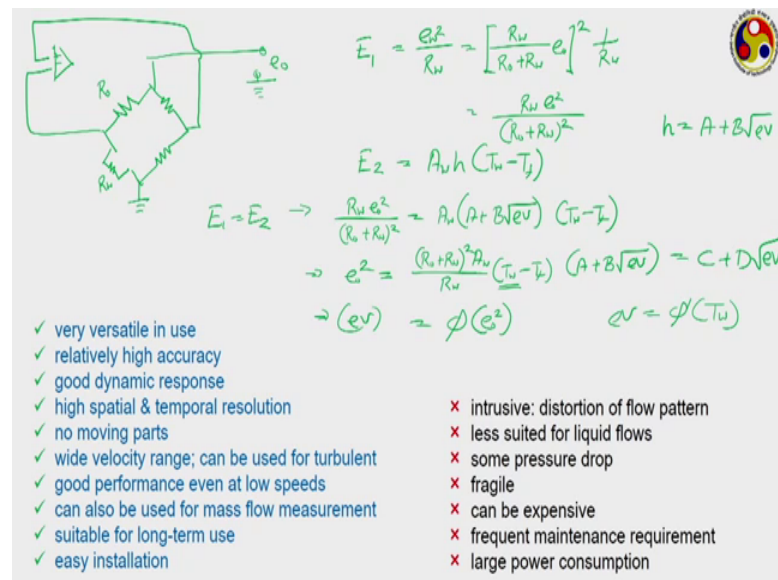 E₁ = e₀²/R_w = [R_w/(R₀+R_w) e₀]² 1/R_w
= R_w e₀²/(R₀+R_w)²
h = A + B√ρv
E₂ = A_w h (T_w − T_f)
E₁ = E₂ → R_w e₀²/(R₀+R_w)² = A_w (A + B√ρv) (T_w − T_f)
→ e₀² = (R₀+R_w)² A_w/R_w (T_w − T_f) (A + B√ρv) = C + D√ρv
→ (ρv) = φ(e₀²)
ρv = φ(T_w)
R₀
R_w
e₀
✓ very versatile in use
✓ relatively high accuracy
✓ good dynamic response
✓ high spatial & temporal resolution
✓ no moving parts
✓ wide velocity range; can be used for turbulent
✓ good performance even at low speeds
✓ can also be used for mass flow measurement
✓ suitable for long-term use
✓ easy installation
× intrusive: distortion of flow pattern
× less suited for liquid flows
× some pressure drop
× fragile
× can be expensive
× frequent maintenance requirement
× large power consumption